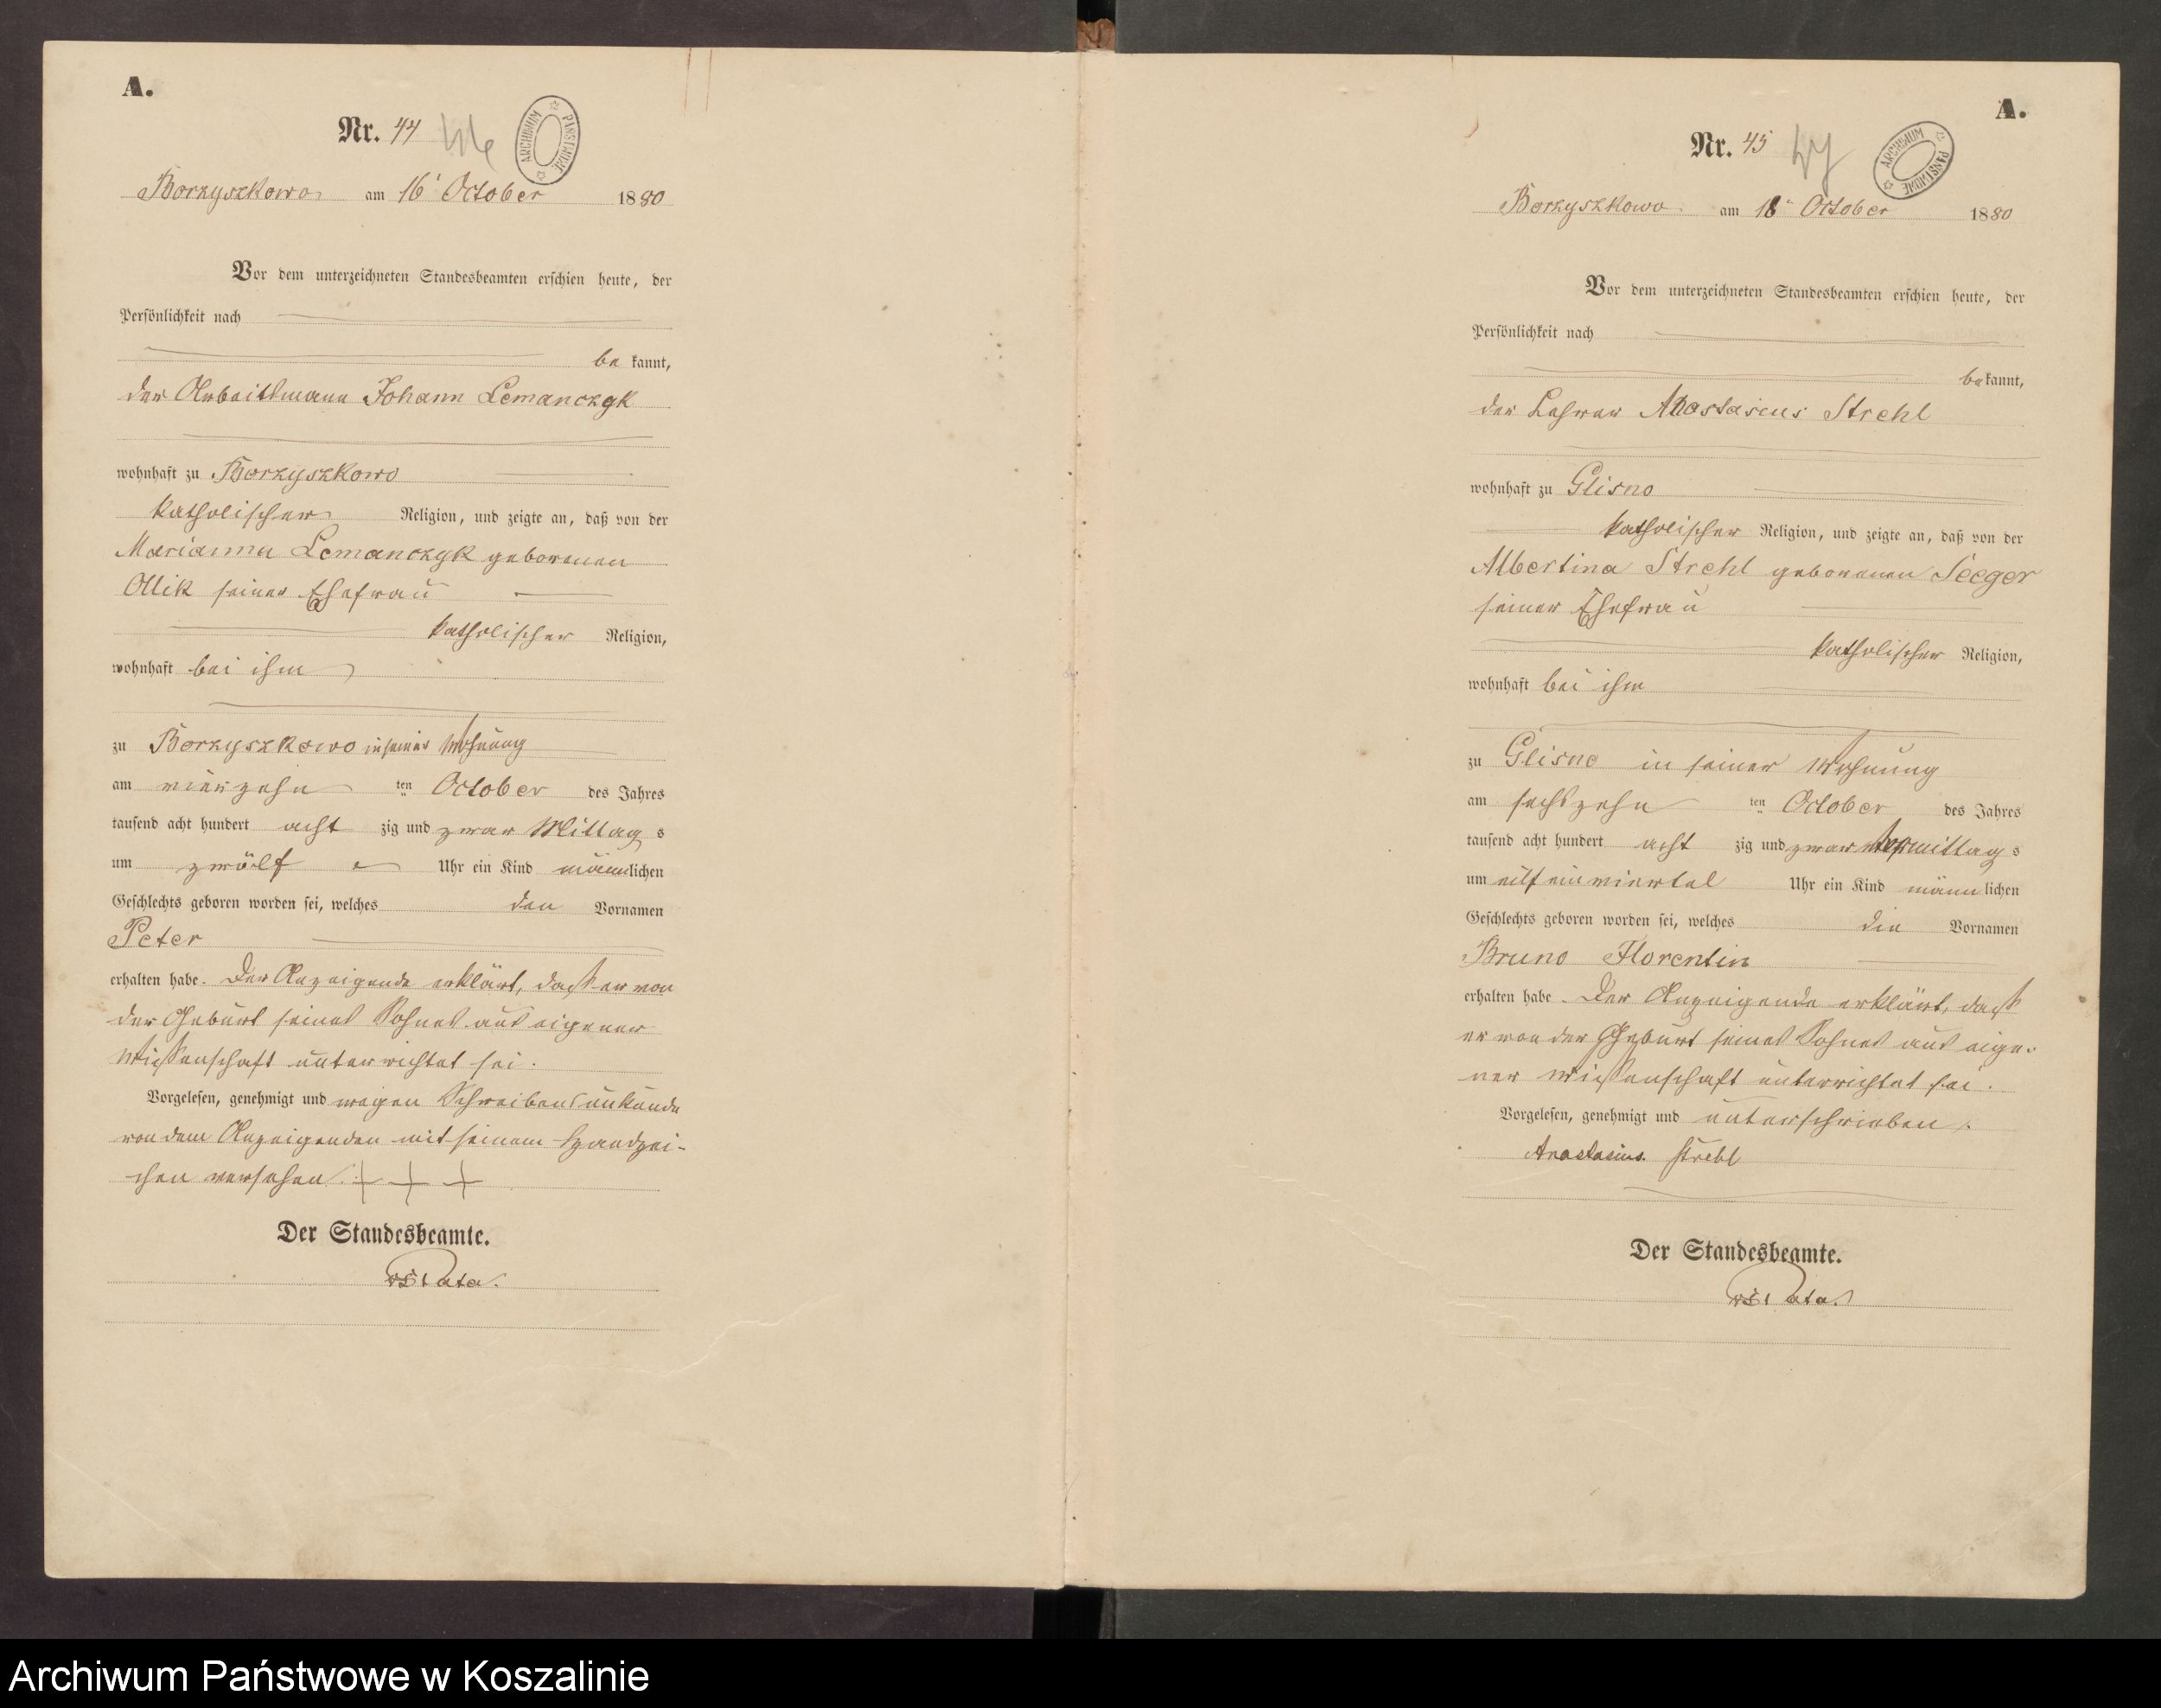 A.
Nr. 44
ARCHIWUM PAŃSTWOWE
Borzyszkowo am 16 October 1880
Vor dem unterzeichneten Standesbeamten erschien heute, der
Persönlichkeit nach
be kannt,
der Arbeitsmann Johann Lemanczyk
wohnhaft zu Borzyszkowo
katholischer Religion, und zeigte an, daß von der
Marianna Lemanczyk geborenen
Ollik seiner Ehefrau
katholischer Religion,
wohnhaft bei ihm
zu Borzyszkowo in seiner Wohnung
am vierzehn ten October des Jahres
tausend acht hundert acht zig und zwar Mittag s
um zwölf Uhr ein Kind männlichen
Geschlechts geboren worden sei, welches den Vornamen
Peter
erhalten habe. Der Anzeigende erklärt, daß er von
der Geburt seines Sohnes aus eigener
Wissenschaft unterrichtet sei.
Vorgelesen, genehmigt und wegen Schreibensunkunde
von dem Anzeigenden mit seinem Handzei-
chen versehen. + + +
Der Standesbeamte.
A.
Nr. 45
ARCHIWUM PAŃSTWOWE
Borzyszkowo am 18 October 1880
Vor dem unterzeichneten Standesbeamten erschien heute, der
Persönlichkeit nach
be kannt,
der Lehrer Anastasius Strehl
wohnhaft zu Glisno
katholischer Religion, und zeigte an, daß von der
Albertina Strehl geborenen Seeger
seiner Ehefrau
katholischer Religion,
wohnhaft bei ihm
zu Glisno in seiner Wohnung
am sechszehn ten October des Jahres
tausend acht hundert acht zig und zwar Vormittag s
um eilf ein viertel Uhr ein Kind männ lichen
Geschlechts geboren worden sei, welches die Vornamen
Bruno Florentin
erhalten habe. Der Anzeigende erklärt, daß
er von der Geburt seines Sohnes aus eige-
ner Wissenschaft unterrichtet sei.
Vorgelesen, genehmigt und unterschrieben.
Anastasius Strehl
Der Standesbeamte.
Archiwum Państwowe w Koszalinie